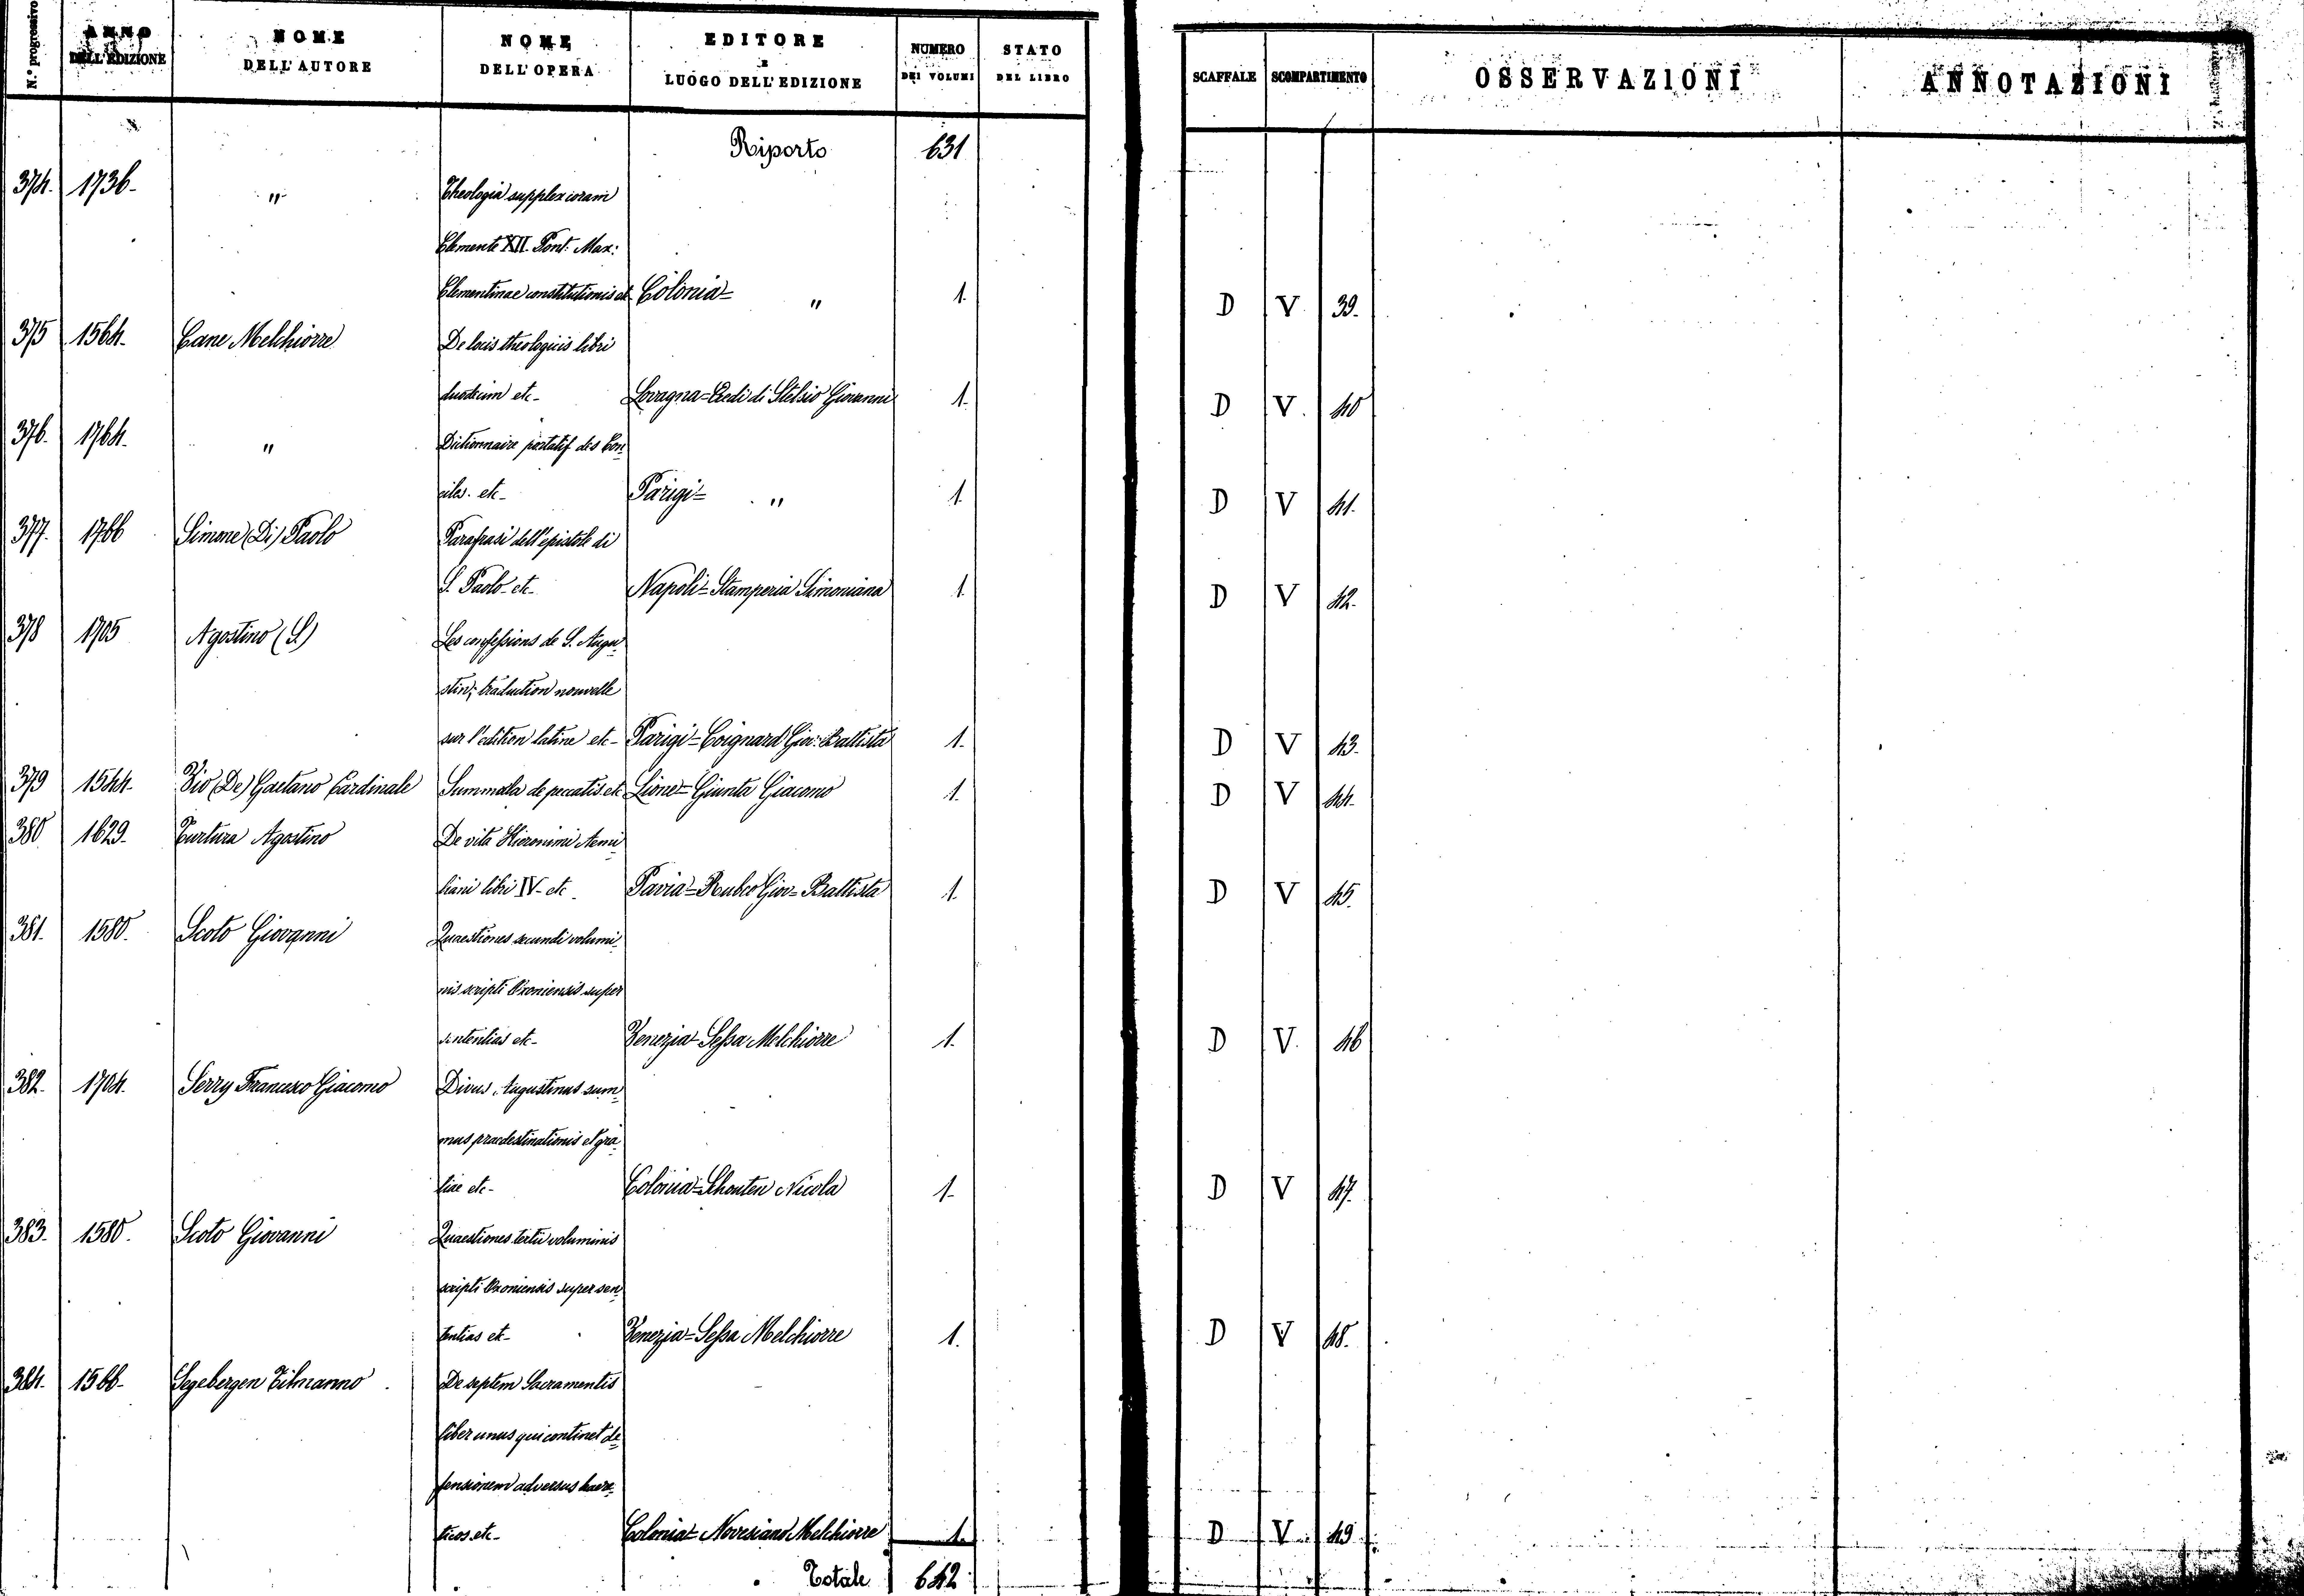 N.º progressivo ANNO DELL'EDIZIONE NOME DELL'AUTORE NOME DELL'OPERA EDITORE E LUOGO DELL'EDIZIONE NUMERO DEI VOLUMI STATO DEL LIBRO SCAFFALE SCOMPARTIMENTO OSSERVAZIONI ANNOTAZIONI
Riporto 631
374. 1736- " Theologia supplex coram
Clemente XII. Pont: Max:
Clementinae constitutionis etc Colonia= " 1. D V 39.
375 1564. Cane Melchiorre De locis theologicis libri
duodecim etc- Lovagna=Eredi di Stelsio Giovanni 1. D V. 40
376. 1764. " Dictionnaire portatif des Con=
ciles. etc- Parigi= " 1. D V 41.
377. 1766 Simone (Di) Paolo Parafrasi dell'epistole di
S. Paolo etc- Napoli=Stamperia Simoniana 1. D V 42.
378 1705 Agostino (S.) Les confessions de S. Augu=
stin; traduction nouvelle
sur l'edition latine etc- Parigi=Coignard Giov: Battista 1. D V 43.
379 1544. Vio (De) Gaetano Cardinale Summula de peccatis etc Lione=Giunta Giacomo 1. D V 44.
380 1629. Turtura Agostino De vita Hieronimi Aemi=
liani libri IV- etc. Pavia=Rubeo Giov= Battista 1. D V 45.
381. 1580. Scoto Giovanni Quaestiones secundi volumi=
nis scripti Oxoniensis super
sententias etc- Venezia=Sessa Melchiorre 1. D V. 46
382. 1704. Serry Francesco Giacomo Divus Augustinus sum=
mus praedestinationis et gra=
tiae etc- Colonia=Schouten Nicola 1. D V 47.
383. 1580. Scoto Giovanni Quaestiones tertii voluminis
scripti Oxoniensis super sen=
tentias etc- Venezia=Sessa Melchiorre 1. D V 48.
384. 1566- Segebergen Tilmanno De septem Sacramentis
liber unus qui continet de=
fensionem adversus haere=
ticos etc- Colonia= Novesiano Melchiorre 1. D V 49
Totale 642